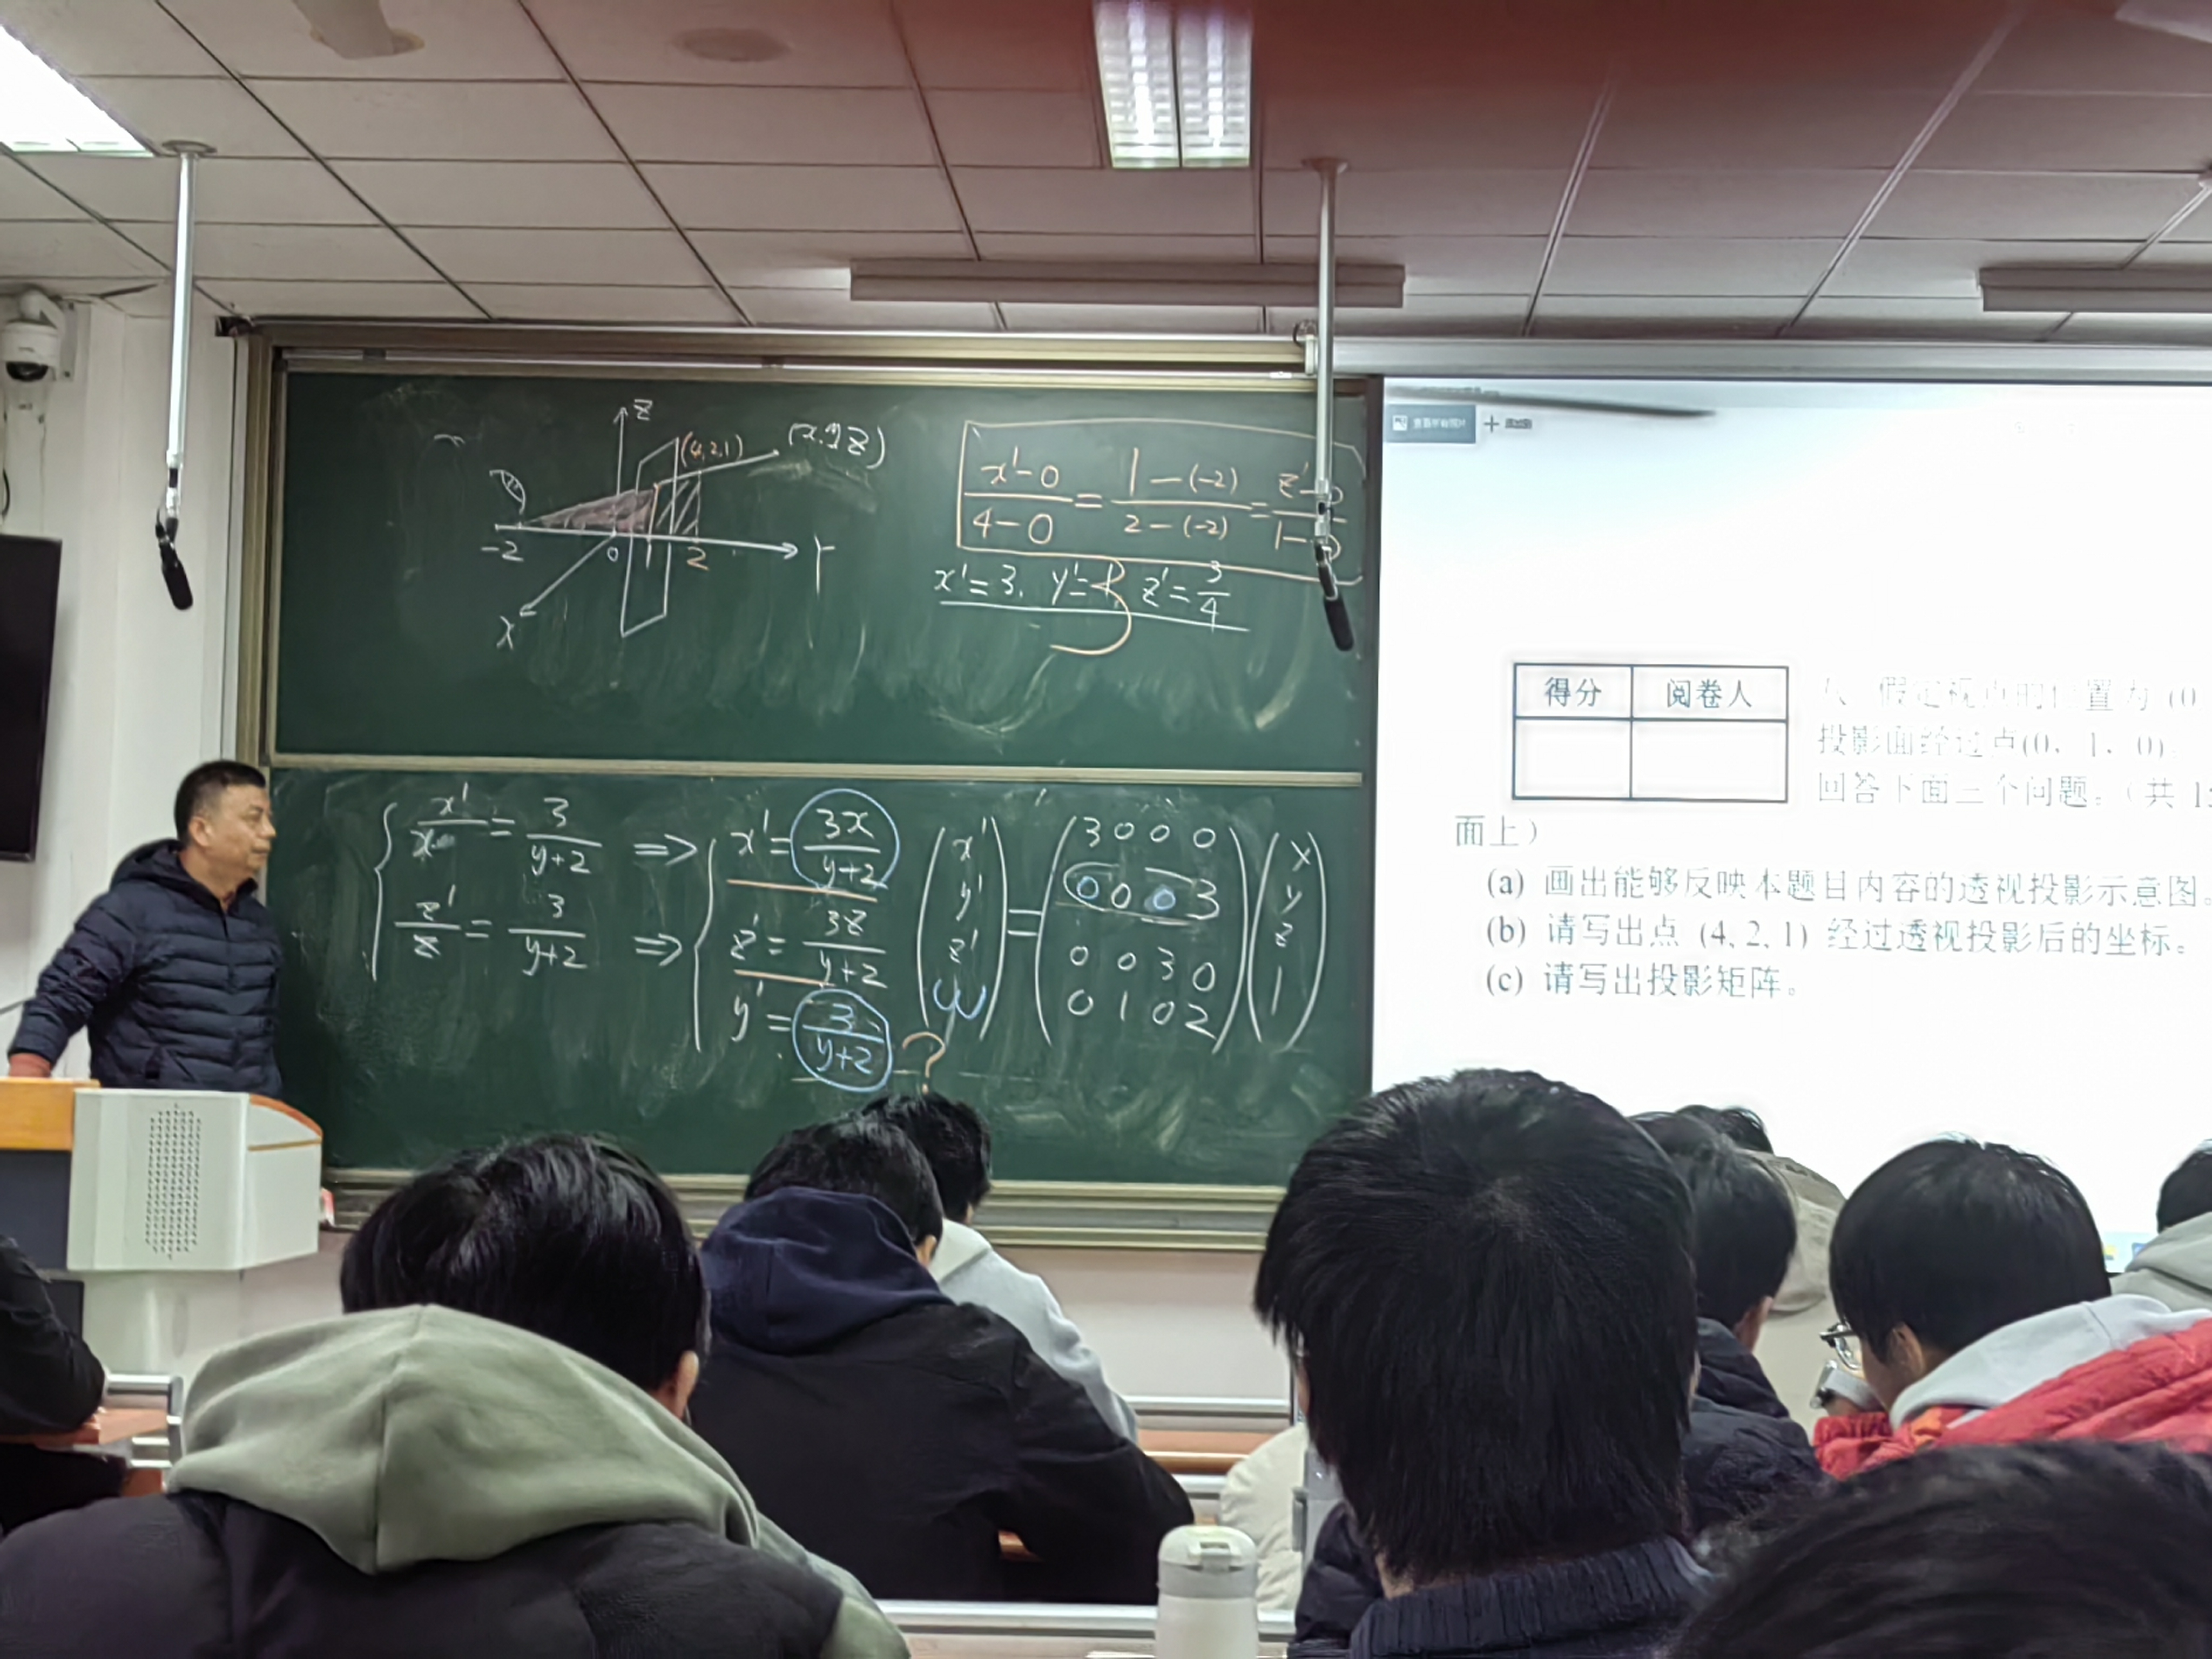 Z
(4,2,1) (x,y,z)
-2 0 1 2 Y
X
x'-0 / 4-0 = 1-(-2) / 2-(-2) = z'-0 / 1-0
x'=3, y'=1, z'=3/4
x'/x = 3/(y+2) => x' = 3x/(y+2)
z'/z = 3/(y+2) => z' = 3z/(y+2)
y' = 3/(y+2) ?
(x' y' z' ω) = (3 0 0 0
0 0 0 3
0 0 3 0
0 1 0 2) (x y z 1)
得分 阅卷人
假定视点的位置为(0
投影面经过点(0, 1, 0),
回答下面三个问题。(共 1
面上)
(a) 画出能够反映本题目内容的透视投影示意图。
(b) 请写出点 (4, 2, 1) 经过透视投影后的坐标。
(c) 请写出投影矩阵。